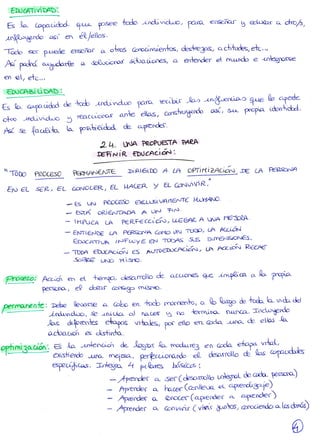 EDUCATIVIDAD:
Es la capacidad que posee todo individuo, para enseñar y educar a otro/s,
influyendo así en él/ellos.
Todo ser puede enseñar a otros conocimientos, destrezas, actitudes, etc...
Así podrá ayudarle a solucionar situaciones, a entender el mundo e integrarse
en él, etc...
EDUCABILIDAD:
Es la capacidad de todo individuo para recibir las influencias que le aporte
otro individuo y reaccionar ante ellas, construyendo así, su propia identidad.
Así se facilita la posibilidad de aprender.
2.4. UNA PROPUESTA PARA
DEFINIR EDUCACIÓN:
"TODO PROCESO PERMANENTE DIRIGIDO A LA OPTIMIZACIÓN DE LA PERSONA
EN EL SER, EL CONOCER, EL HACER Y EL CONVIVIR."
- ES UN PROCESO EXCLUSIVAMENTE HUMANO.
- ESTÁ ORIENTADA A UN FIN.
- IMPLICA LA PERFECCIÓN, LLEGAR A UNA MEJORA
- ENTIENDE LA PERSONA COMO UN TODO, LA ACCIÓN
EDUCATIVA INFLUYE EN TODAS SUS DIMENSIONES.
- TODA EDUCACIÓN ES AUTOEDUCACIÓN, LA ACCIÓN RECAE
SOBRE UNO MISMO.
Proceso: Acción en el tiempo, desarrollo de acciones que implica a la propia
persona, es decir consigo mismo.
permanente: Debe llevarse a cabo en todo momento, a lo largo de toda la vida del
individuo, se inicia al nacer y no termina nunca. Incluyendo
las diferentes etapas vitales, por ello en cada una de ellas la
actuación es distinta.
optimización: Es la intención de lograr la madurez en cada etapa vital,
existiendo una mejora, perfeccionando el desarrollo de las capacidades
específicas. Integra 4 pilares básicos:
- Aprender a ser (desarrollo integral de cada persona)
- Aprender a hacer (conlleva el aprendizaje)
- Aprender a conocer (aprender a aprender)
- Aprender a convivir (vivir juntos, conociendo a los demás)
4